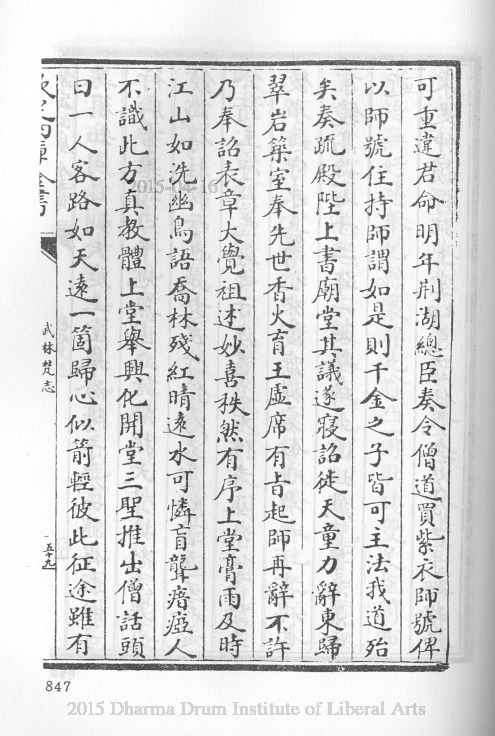 可重違君命明年荆湖總臣奏令僧道買紫衣師號俾
以師號住持師謂如是則千金之子皆可主法我道殆
矣奏疏殿陛上書廟堂其議遂寢詔徙天童力辭東歸
翠岩築室奉先世香火育王虛席有旨起師再辭不許
乃奉詔表章大覺祖述妙喜秩然有序上堂膏雨及時
江山如洗幽鳥語喬林殘紅晴遠水可憐盲聾瘖瘂人
不識此方真教體上堂舉興化開堂三聖推出僧話頭
曰一人客路如天遠一箇歸心似箭輕彼此征途雖有
欽定四庫全書
武林梵志
五十九
847
2015-04-16
2015 Dharma Drum Institute of Liberal Arts